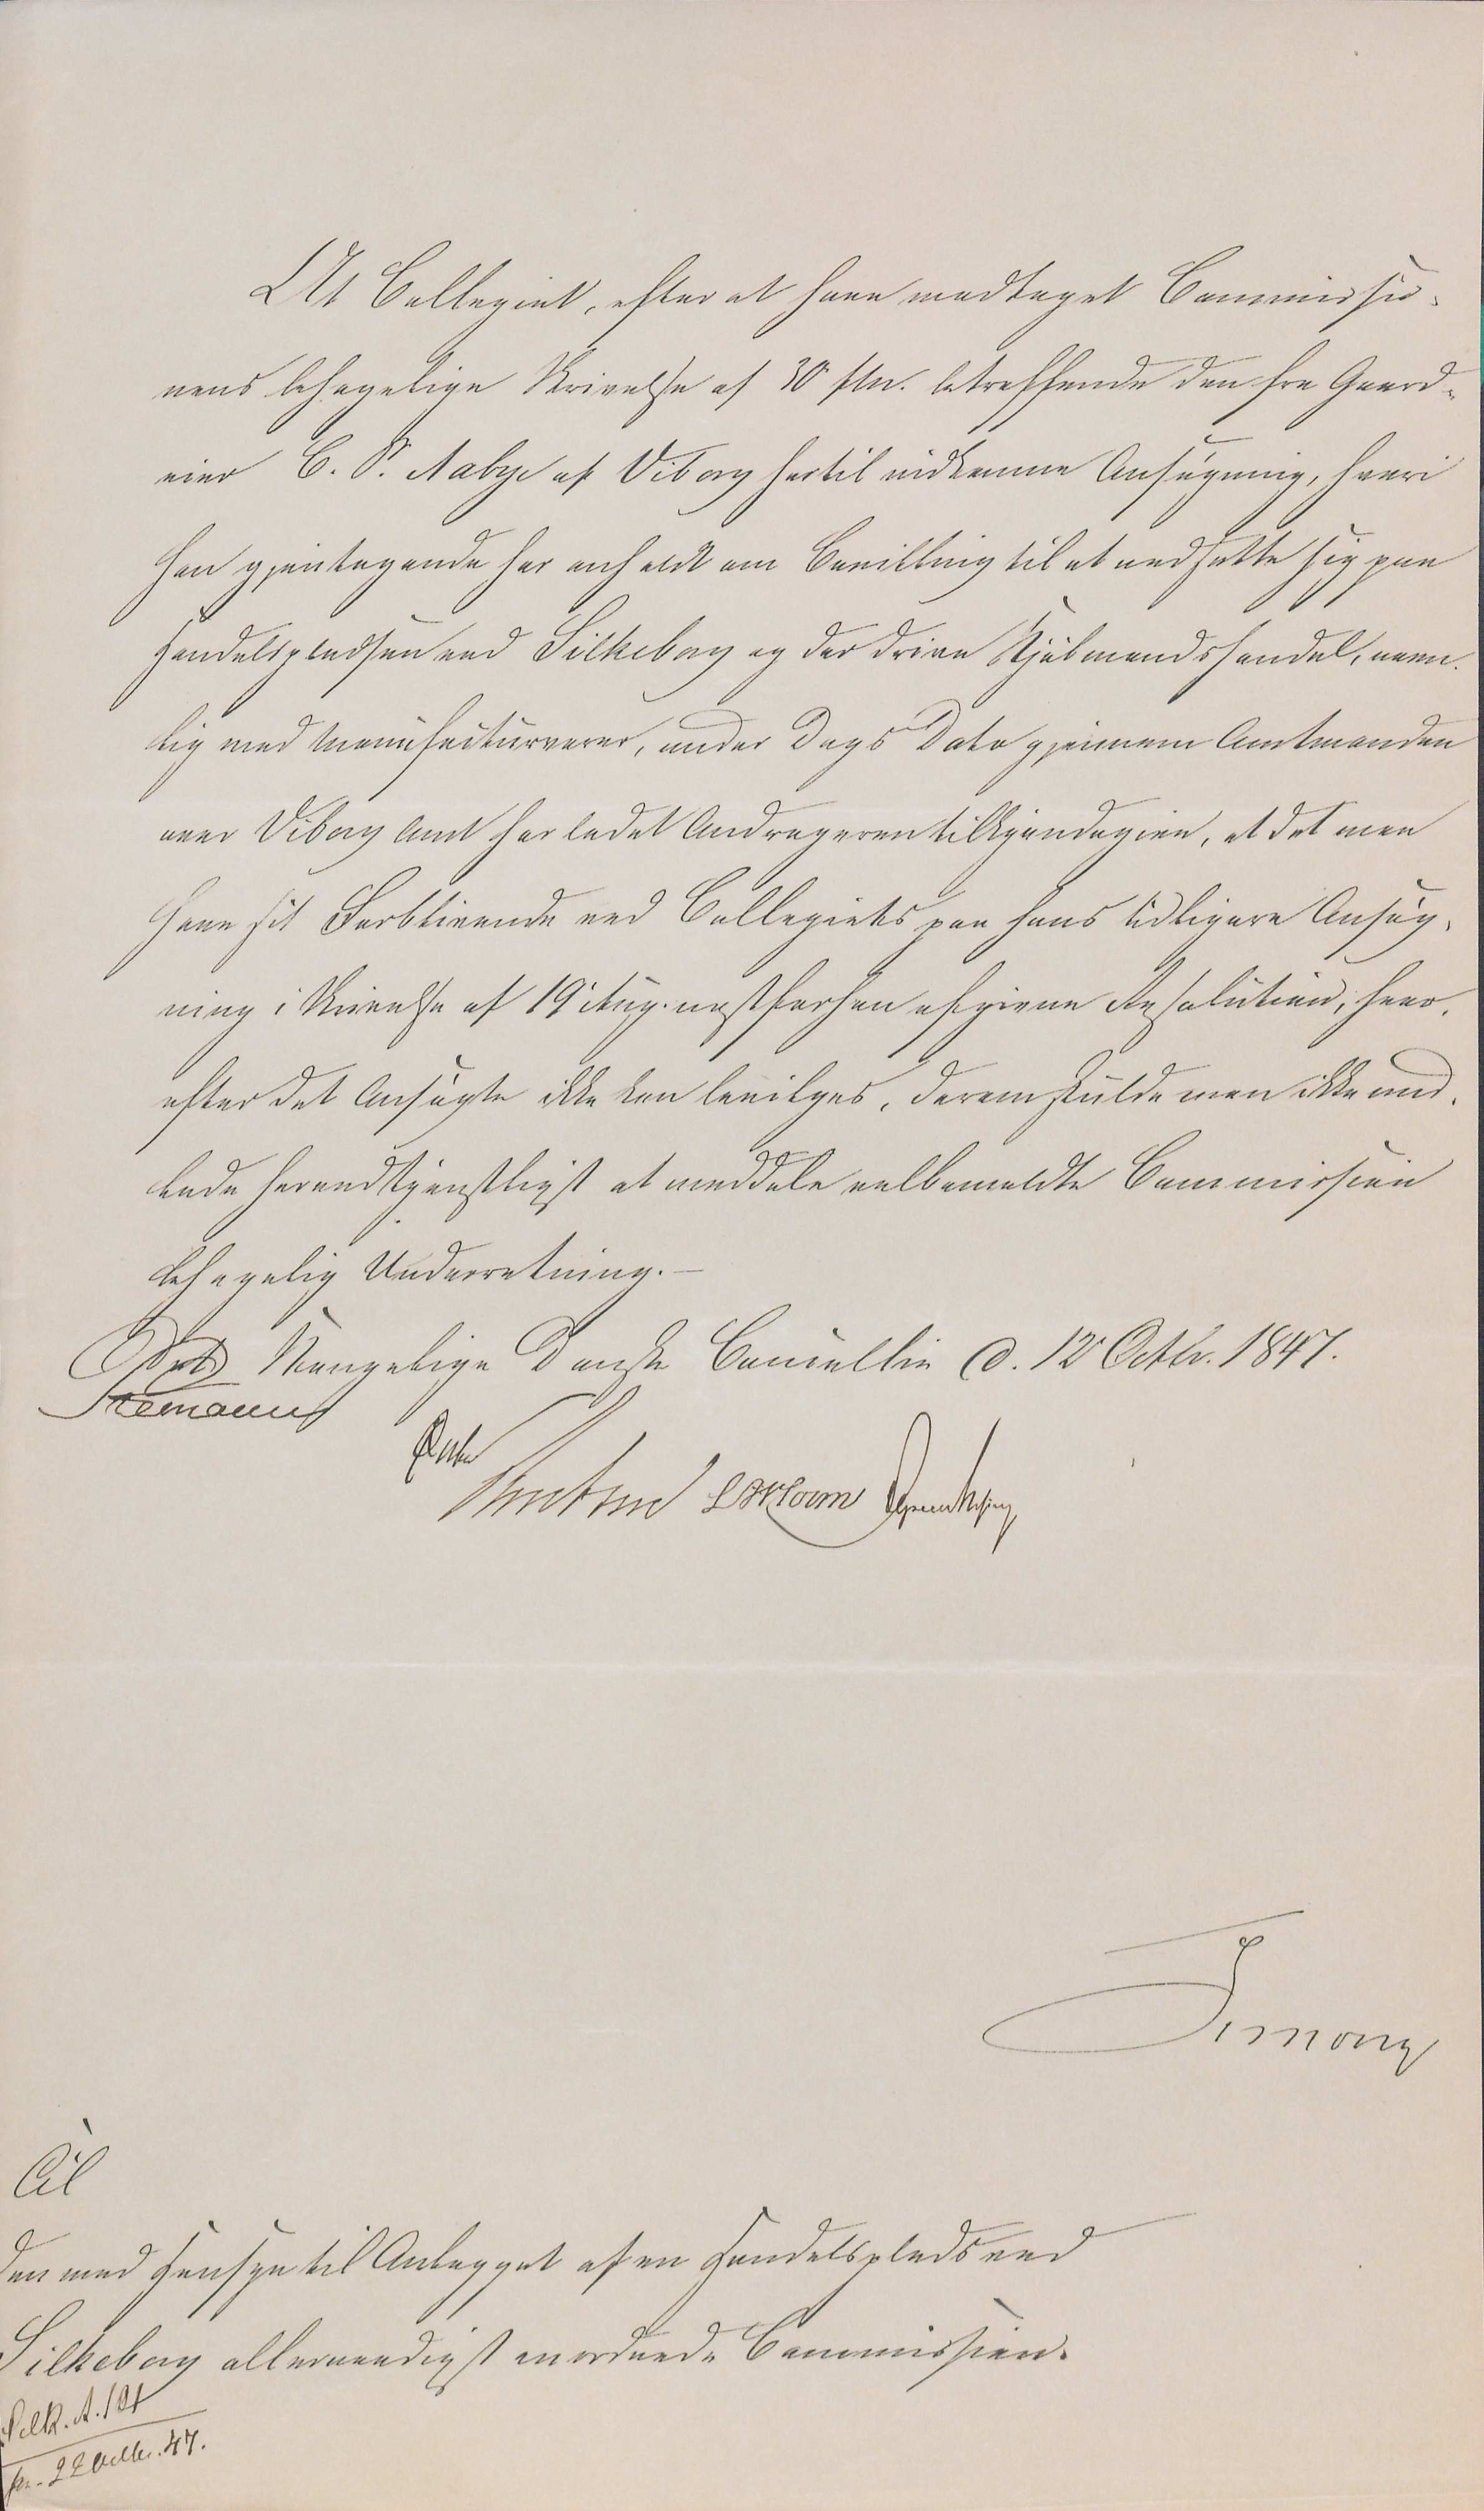 At Collegiet, efter at have modtaget Commissio-
nens behagelige Skrivelse af 30 f.M. betreffende den fra Gaard-
eier C. P. Aabye af Viborg hertil indkomne Ansøgning, hvori
han gjentagende har anholdt om Bevilling til at nedsætte sig paa
Handelspladsen ved Silkeborg og der drive Kjøbmandshandel, navn-
lig med Manufacturvarer, under Dags Dato gjennem Amtmanden
over Viborg Amt har ladet Andrageren tilkjendegive, at det maa
have sit Forblivende ved Collegiets paa hans tidligere Ansøg-
ning i Skrivelse af 19 Aug. næstforhen afgivne Resolution, hvor-
efter det Ansøgte ikke kan bevilges, derom skulde man ikke und-
lade herved tjenstligst at meddele velbemeldte Commission
behagelig Underretning.—
Det Kongelige Danske Cancellie d. 12 Octbr. 1847.
Stemann
Timong
Til
den med Hensyn til Anlægget af en Handelsplads ved
Silkeborg allernaadigst anordnede Commission.
Silk. A. 101
pr. 22 Octbr. 47.